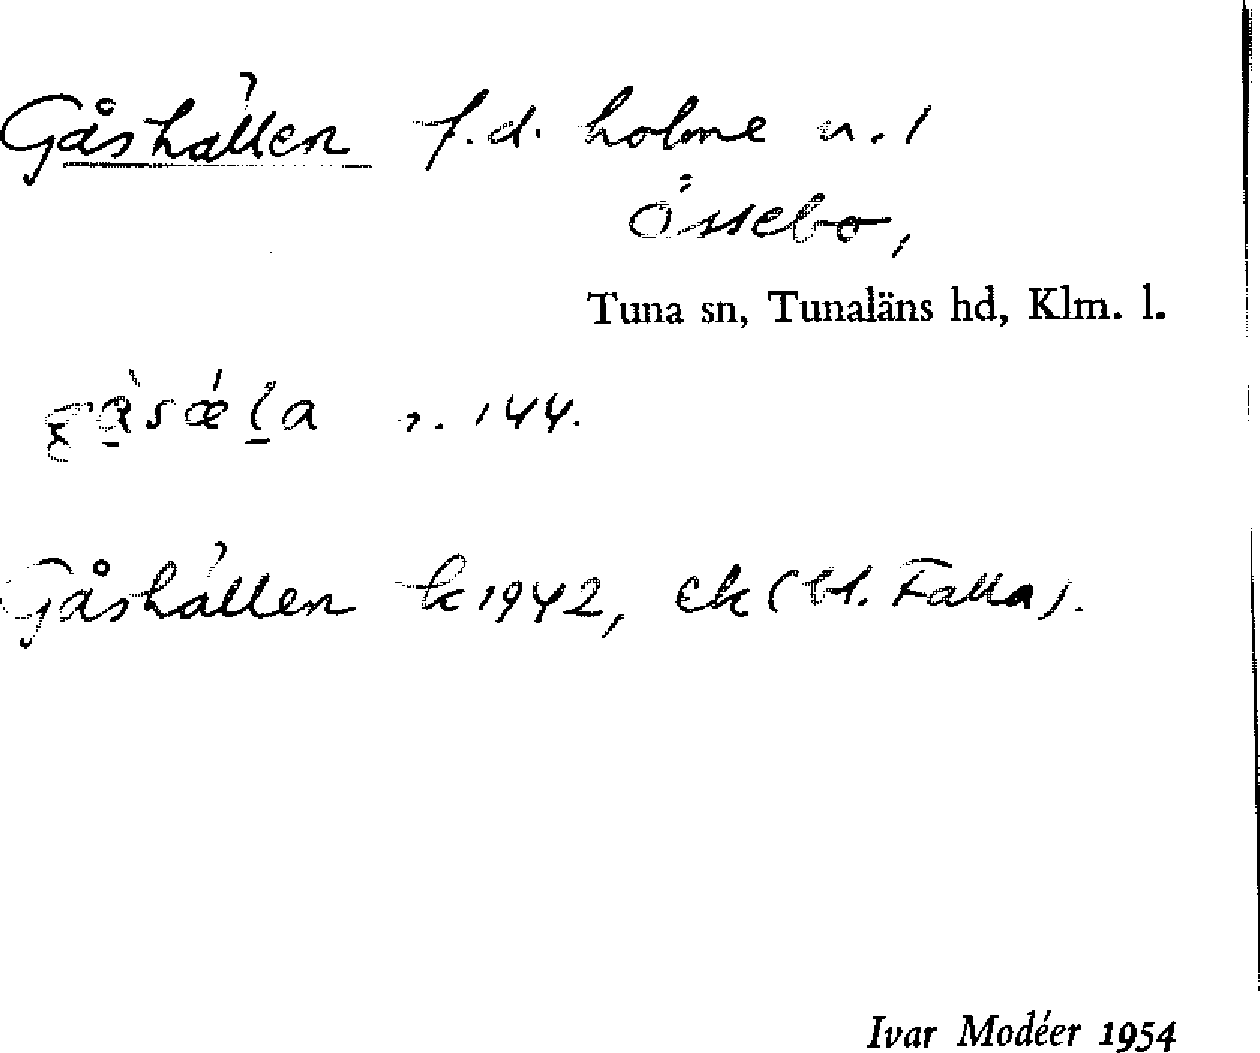 Gåshällen f.d. holme n. 1
Össebo,
Tuna sn, Tunaläns hd, Klm. l.
n. 144.
Gåshällen k 1942, ek (bl. Falla).
Ivar Modéer 1954